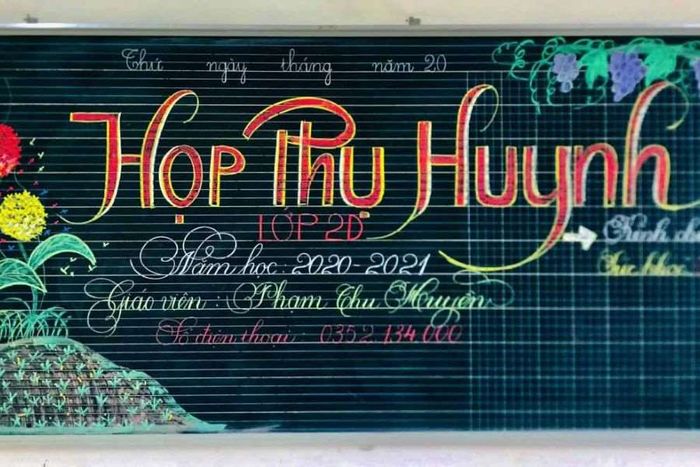 Thứ ngày tháng năm 20
Họp Phụ Huynh
LỚP 2D
Năm học: 2020-2021
Kính
Giáo viên: Phạm Thu Huyền
Số điện thoại: 0352.134.000